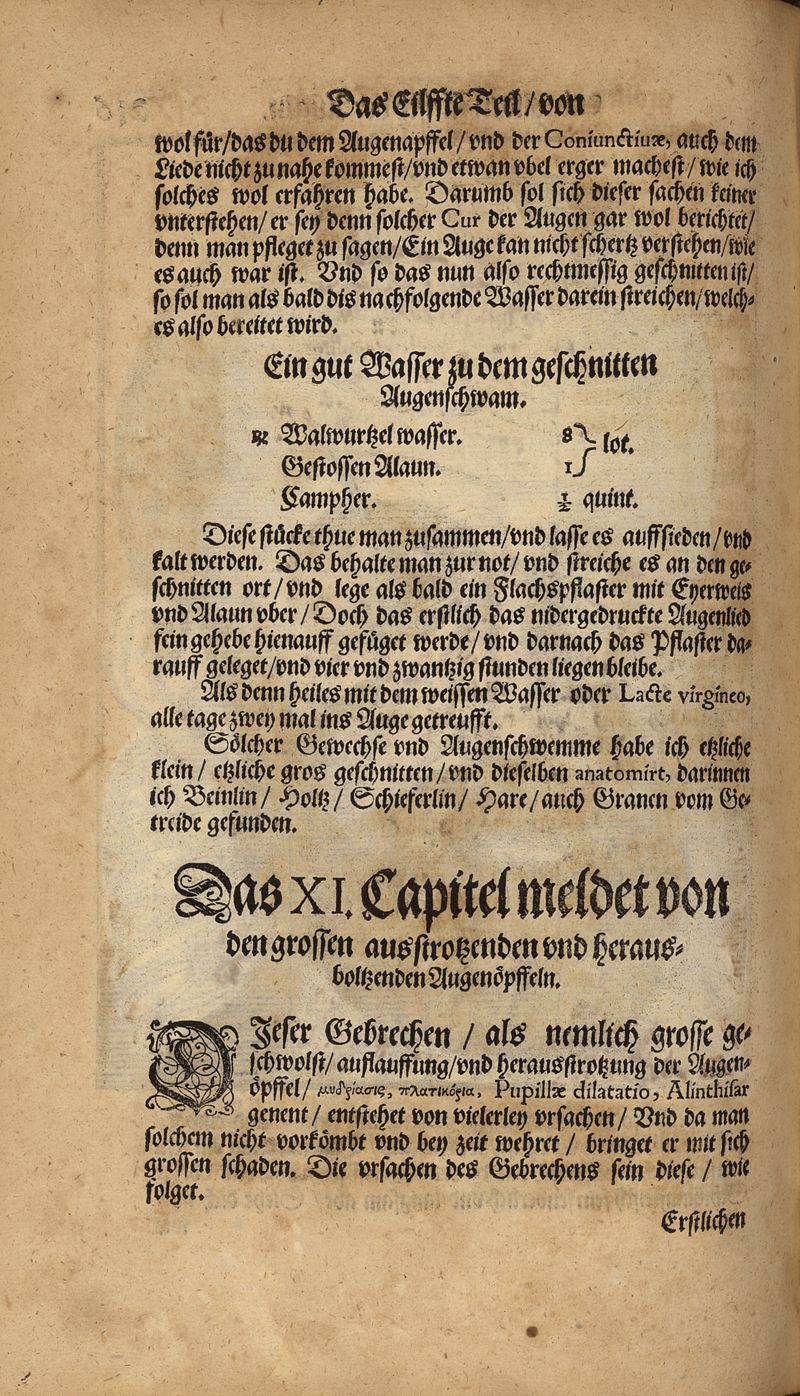 Das Eilffte Teil/von
wol für/das du dem Augenapffel/vnd der Coniunctiuæ, auch dem
Liede nicht zu nahe kommest/vnd etwan vbel erger machest/wie ich
solches wol erfahren habe. Darumb sol sich dieser sachen keiner
vnterstehen/er sey denn solcher Cur der Augen gar wol berichtet/
denn man pfleget zu sagen/Ein Auge kan nicht schertz verstehen/wie
es auch war ist. Vnd so das nun also rechtmessig geschnitten ist/
so sol man als bald dis nachfolgende Wasser darein streichen/welch-
es also bereitet wird.
Ein gut Wasser zu dem geschnitten
Augenschwam.
℞ Walwurtzel wasser. 8 } lot.
Gestossen Alaun. 1
Campher. ½ quint.
Diese stücke thue man zusammen/vnd lasse es auffsieden/vnd
kalt werden. Das behalte man zur not/vnd streiche es an den ge-
schnitten ort/vnd lege als bald ein Flachspflaster mit Eyerweis
vnd Alaun vber/Doch das erstlich das nidergedruckte Augenlied
fein gehebe hienauff gefüget werde/vnd darnach das Pflaster da-
rauff geleget/vnd vier vnd zwantzig stunden liegen bleibe.
Als denn heiles mit dem weissen Wasser oder Lacte virgineo,
alle tage zwey mal ins Auge getreufft.
Sölcher Gewechse vnd Augenschwemme habe ich etzliche
klein/etzliche gros geschnitten/vnd dieselben anatomirt, darinnen
ich Beinlin/Holtz/Schieferlin/Hare/auch Granen vom Ge-
treide gefunden.
Das XI. Capitel meldet von
den grossen ausstrotzenden vnd heraus-
boltzenden Augenöpffeln.
DIeser Gebrechen/als nemlich grosse ge-
schwolst/auflauffung/vnd herausstrotzung der Augen-
öpffel/μυδρίασις, πλατικόρια, Pupillæ dilatatio, Alinthisar
genent/entstehet von vielerley vrsachen/Vnd da man
solchem nicht vorkömbt vnd bey zeit wehret/bringet er mit sich
grossen schaden. Die vrsachen des Gebrechens sein diese/wie
folget.
Erstlichen